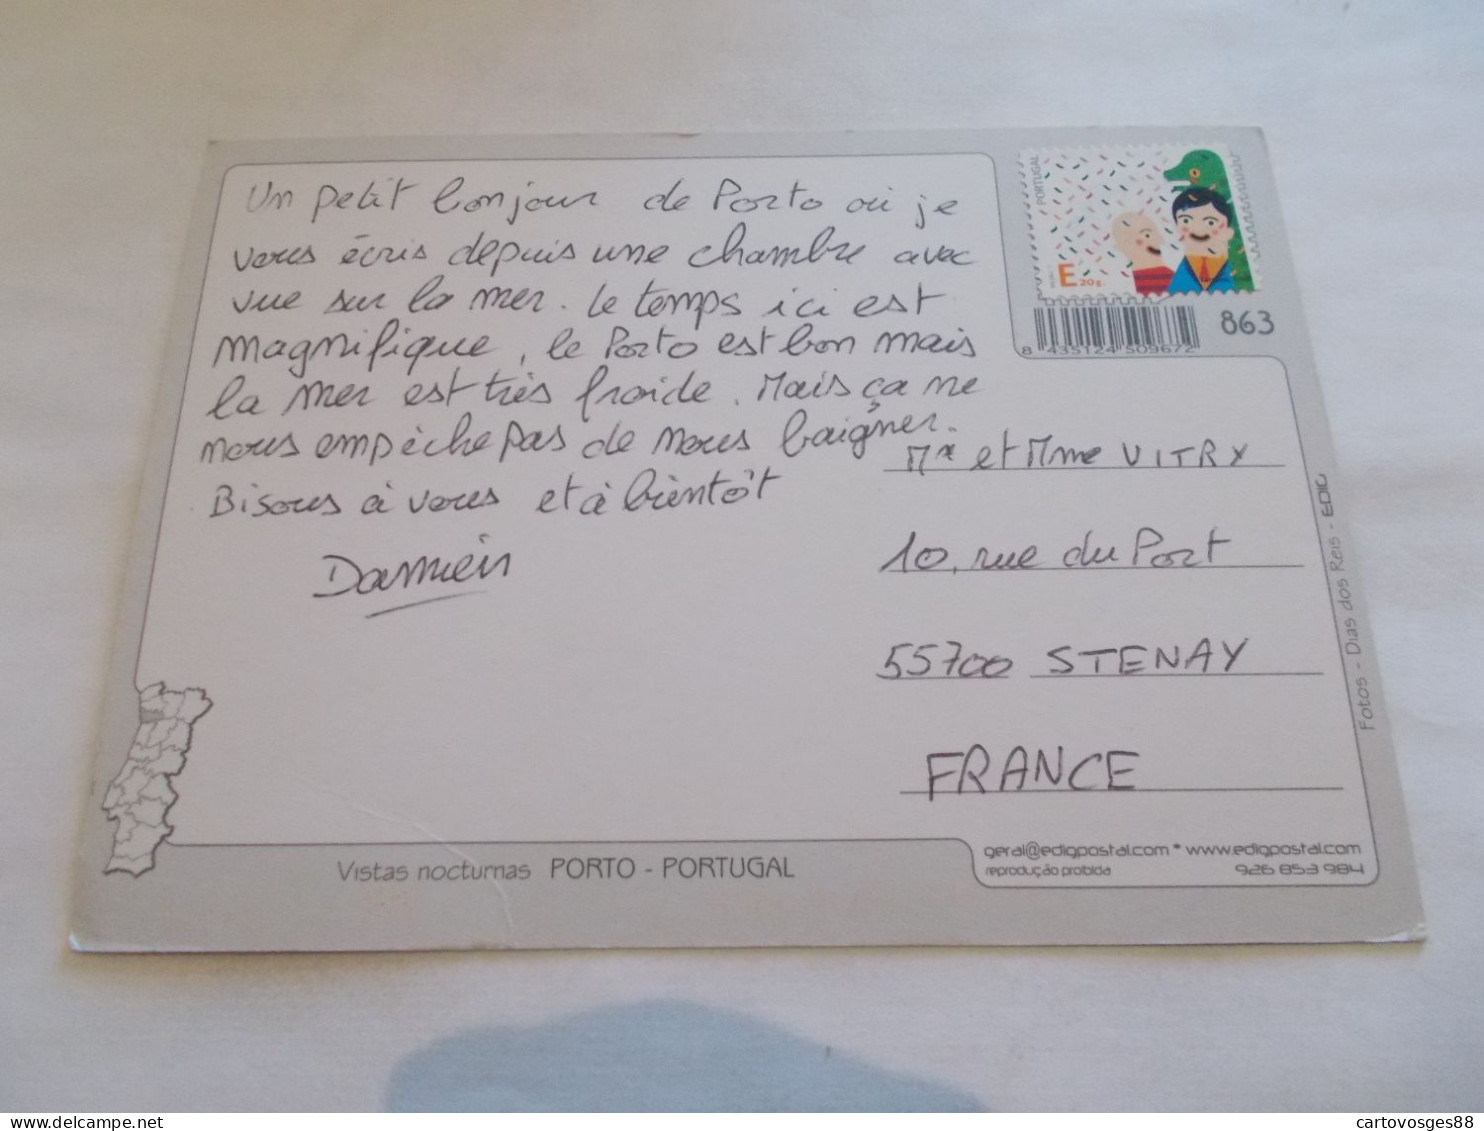 Un petit bonjour de Porto où je
vous écris depuis une chambre avec
vue sur la mer. Le temps ici est
magnifique, le Porto est bon mais
la mer est très froide. Mais ça ne
nous empèche pas de nous baigner.
Bisous à vous et à bientôt
Damien
PORTUGAL
E 20g.
8 435124 509672
863
Mr et Mme VITRY
10, rue du Port
55700 STENAY
FRANCE
Fotos - Dias dos Reis - EDIG
Vistas nocturnas PORTO - PORTUGAL
geral@edigpostal.com * www.edigpostal.com
reprodução proibida 926 853 984
cartovosges88